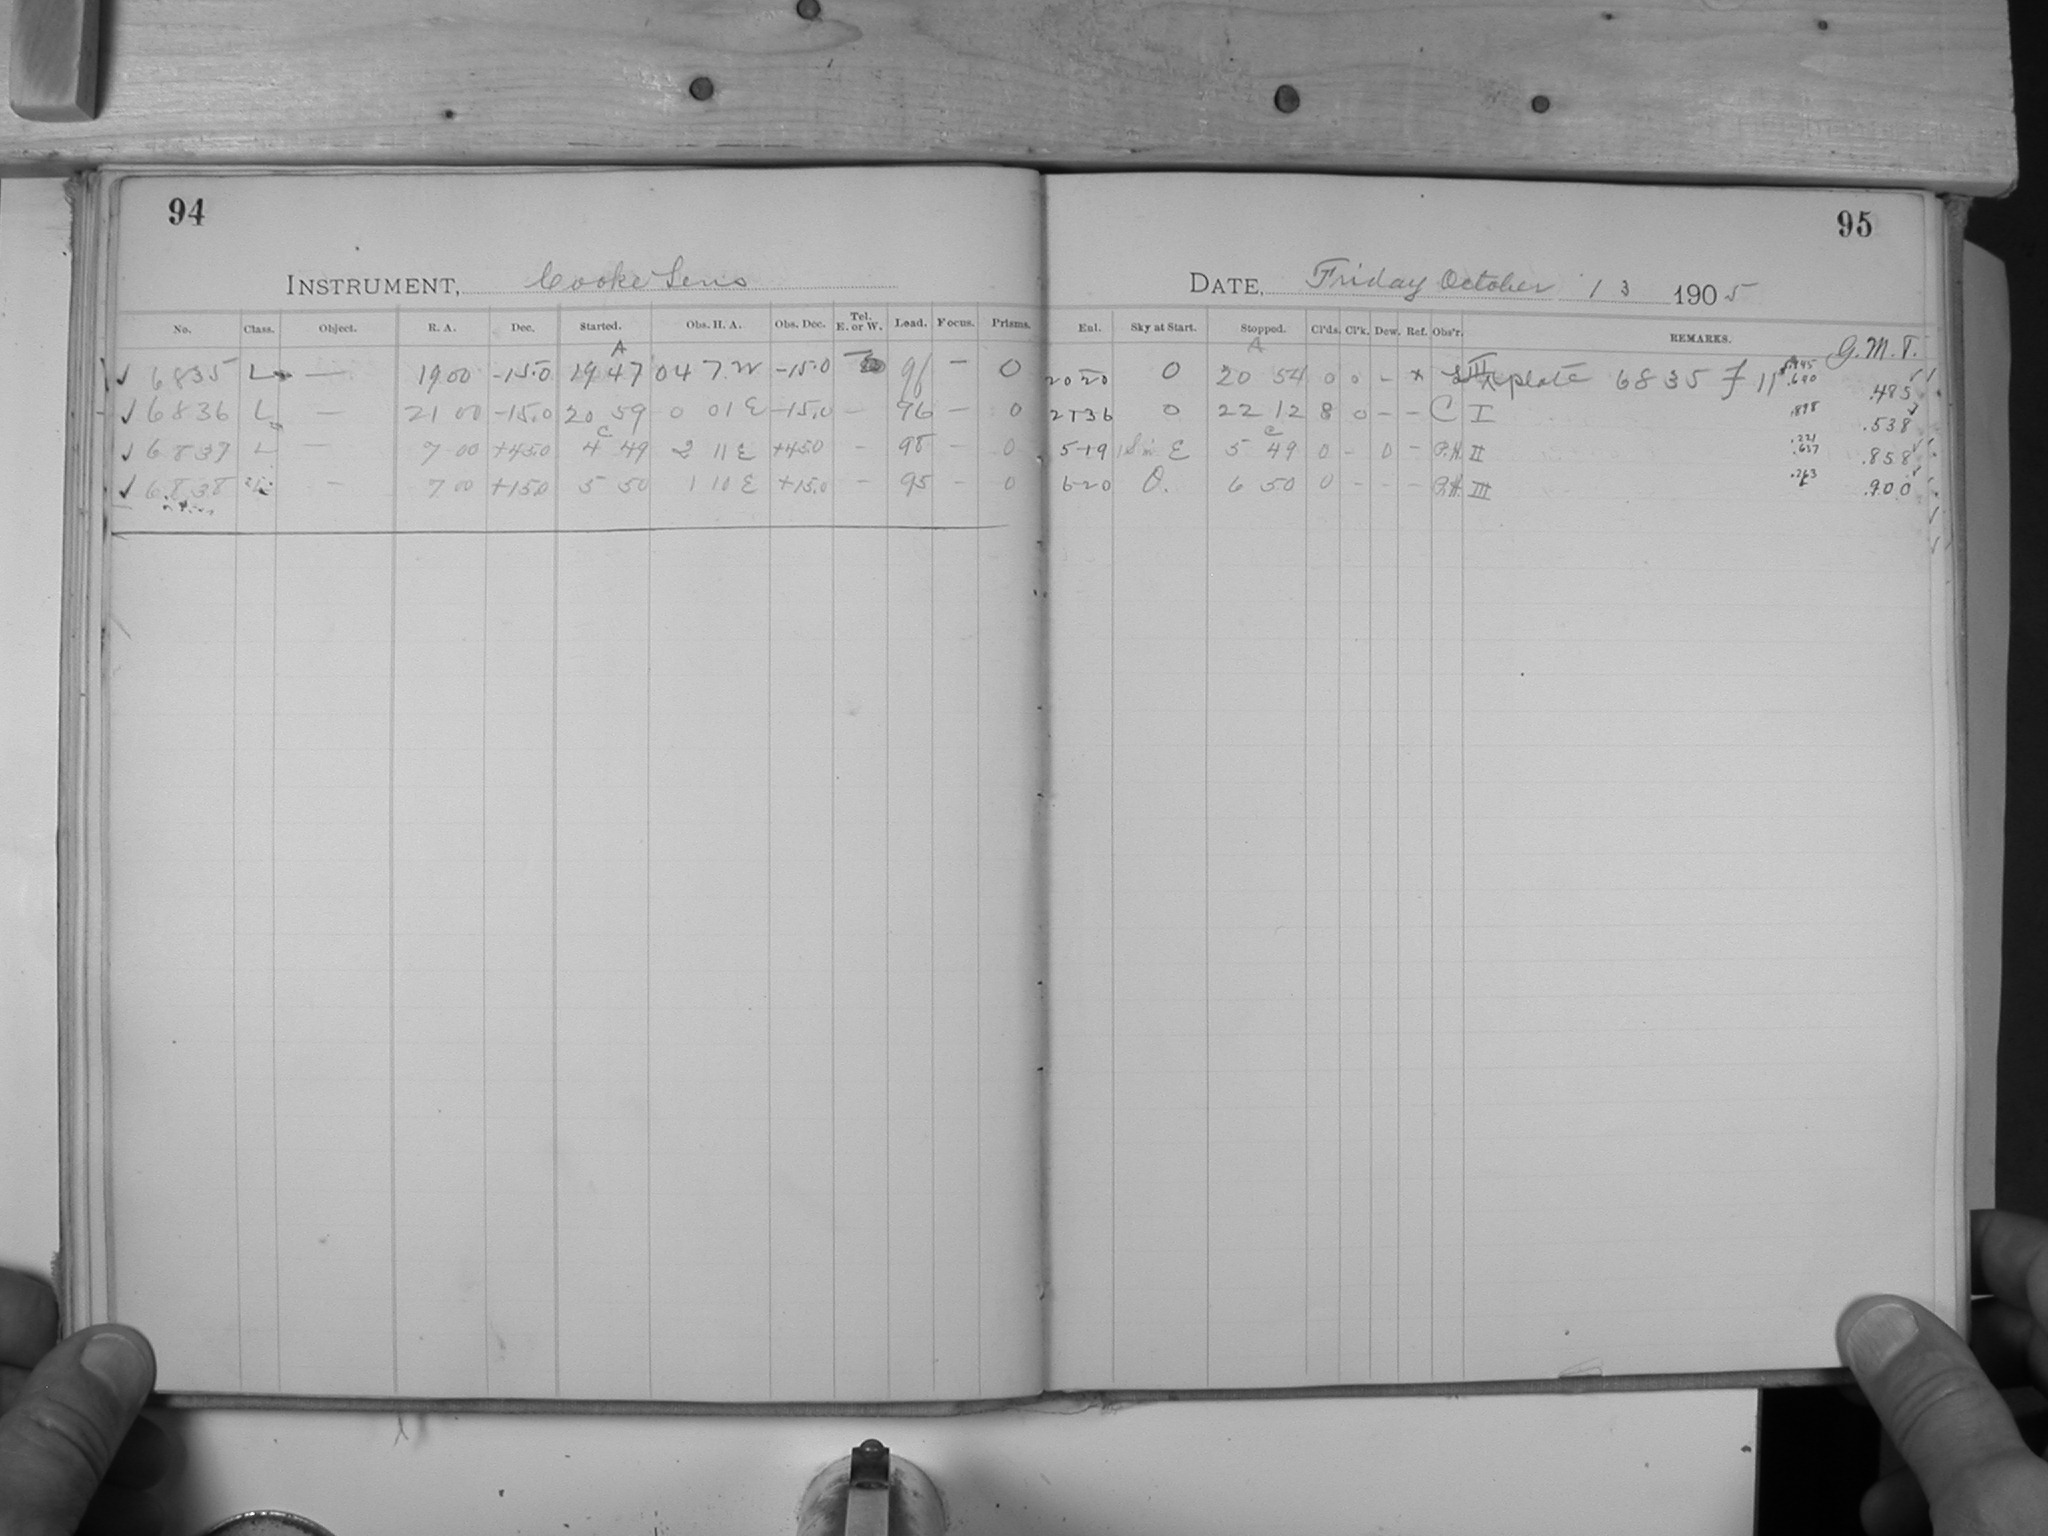 94
INSTRUMENT, Cooke Lens
No. Class. Object. R. A. Dec. Started. Obs. H. A. Obs. Dec. Tel. E. or W. Load. Focus. Prisms.
A
6835 L — 19 00 -15.0 19 47 0 47 W -15.0 — 0
6836 L — 21 00 -15.0 20 59 0 01 E -15.0 — 96 — 0
C
6837 L — 7 00 +45.0 4 49 2 11 E +45.0 — 98 — 0
6838 — 7 00 +15.0 5 50 1 10 E +15.0 — 95 — 0
95
DATE, Friday October 13 1905
Enl. Sky at Start. Stopped. Cl'ds. Cl'k. Dew. Ref. Obs'r. REMARKS. G. M. T.
A
20 20 0 20 54 0 0 - * plate 6835 .485
21 36 0 22 12 8 0 - - C I .898 .538
C
5 19 E 5 49 0 - 0 - P.H. II .221 .637 .858
6 20 0. 6 50 0 - - - P.H. III .263 .900